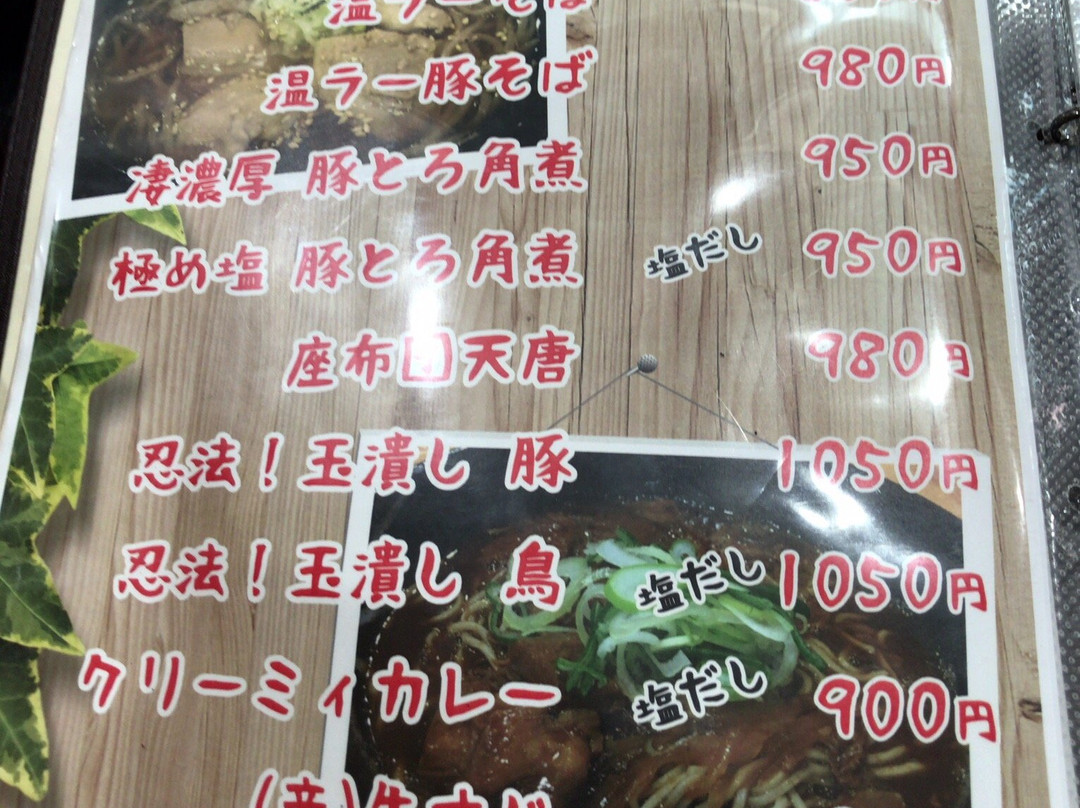 温ラーそば
温ラー豚そば 980円
凄濃厚 豚とろ角煮 950円
極め塩 豚とろ角煮 塩だし 950円
座布団天唐 980円
忍法!玉潰し 豚 1050円
忍法!玉潰し 鳥 塩だし 1050円
クリーミィカレー 塩だし 900円